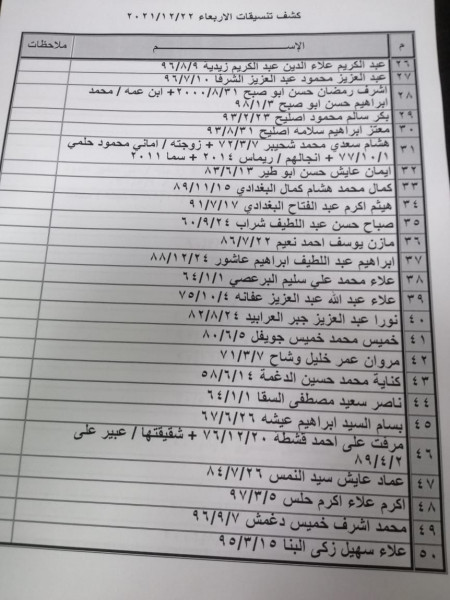 كشف تنسيقات الاربعاء ٢٠٢١/١٢/٢٢
م الإســـــم ملاحظات
٢٦ عبد الكريم علاء الدين عبد الكريم زيدية ٩٦/٨/٩
٢٧ عبد العزيز محمود عبد العزيز الشرفا ٩٦/٧/١٠
٢٨ اشرف رمضان حسن ابو صبح ٢٠٠٠/٨/٣١+ ابن عمه / محمد
ابراهيم حسن ابو صبح ٩٨/١/٣
٢٩ بكر سالم محمود اصليح ٩٣/٢/٢٣
٣٠ معتز ابراهيم سلامه اصليح ٩٣/٨/٣١
٣١ هشام سعدي محمد شحيبر ٧٢/٣/٧ + زوجته / اماني محمود حلمي
٧٧/١٠/١ + انجالهم / ريماس ٢٠١٤ + سما ٢٠١١
٣٢ ايمان عايش حسن ابو طير ٨٣/٦/١٣
٣٣ كمال محمد هشام كمال البغدادي ٨٩/١١/١٥
٣٤ هيثم اكرم عبد الفتاح البغدادي ٩١/٧/١٧
٣٥ صباح حسن عبد اللطيف شراب ٦٠/٩/٢٤
٣٦ مازن يوسف احمد نعيم ٨٦/٧/٢٢
٣٧ ابراهيم عبد اللطيف ابراهيم عاشور ٨٨/١٢/٢٤
٣٨ علاء محمد علي سليم البرعصي ٦٤/١/١
٣٩ علاء عبد الله عبد العزيز عفانه ٧٥/١٠/٤
٤٠ نورا عبد العزيز جبر العرابيد ٨٢/٨/٢٤
٤١ خميس محمد خميس جويفل ٨٠/٦/٥
٤٢ مروان عمر خليل وشاح ٧١/٣/٧
٤٣ كناية محمد حسين الدغمة ٥٨/٦/١٤
٤٤ ناصر سعيد مصطفى السقا ٦٤/١/١
٤٥ بسام السيد ابراهيم عيشه ٦٧/٦/٢٦
٤٦ مرفت على احمد قشطه ٧٦/١٢/٢٠ + شقيقتها / عبير على
٨٩/٤/٢
٤٧ عماد عايش سيد النمس ٨٤/٧/٢٦
٤٨ اكرم علاء اكرم حلس ٩٧/٣/٥
٤٩ محمد اشرف خميس دغمش ٩٦/٩/٧
٥٠ علاء سهيل زكى البنا ٩٥/٣/١٥